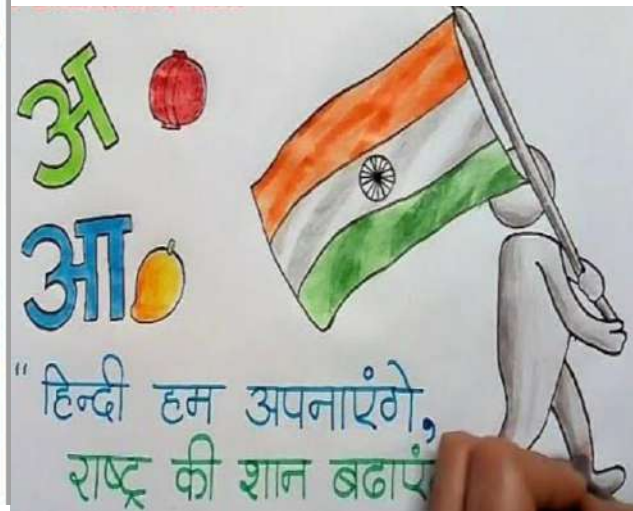 अ
आ
"हिन्दी हम अपनाएंगे,
राष्ट्र की शान